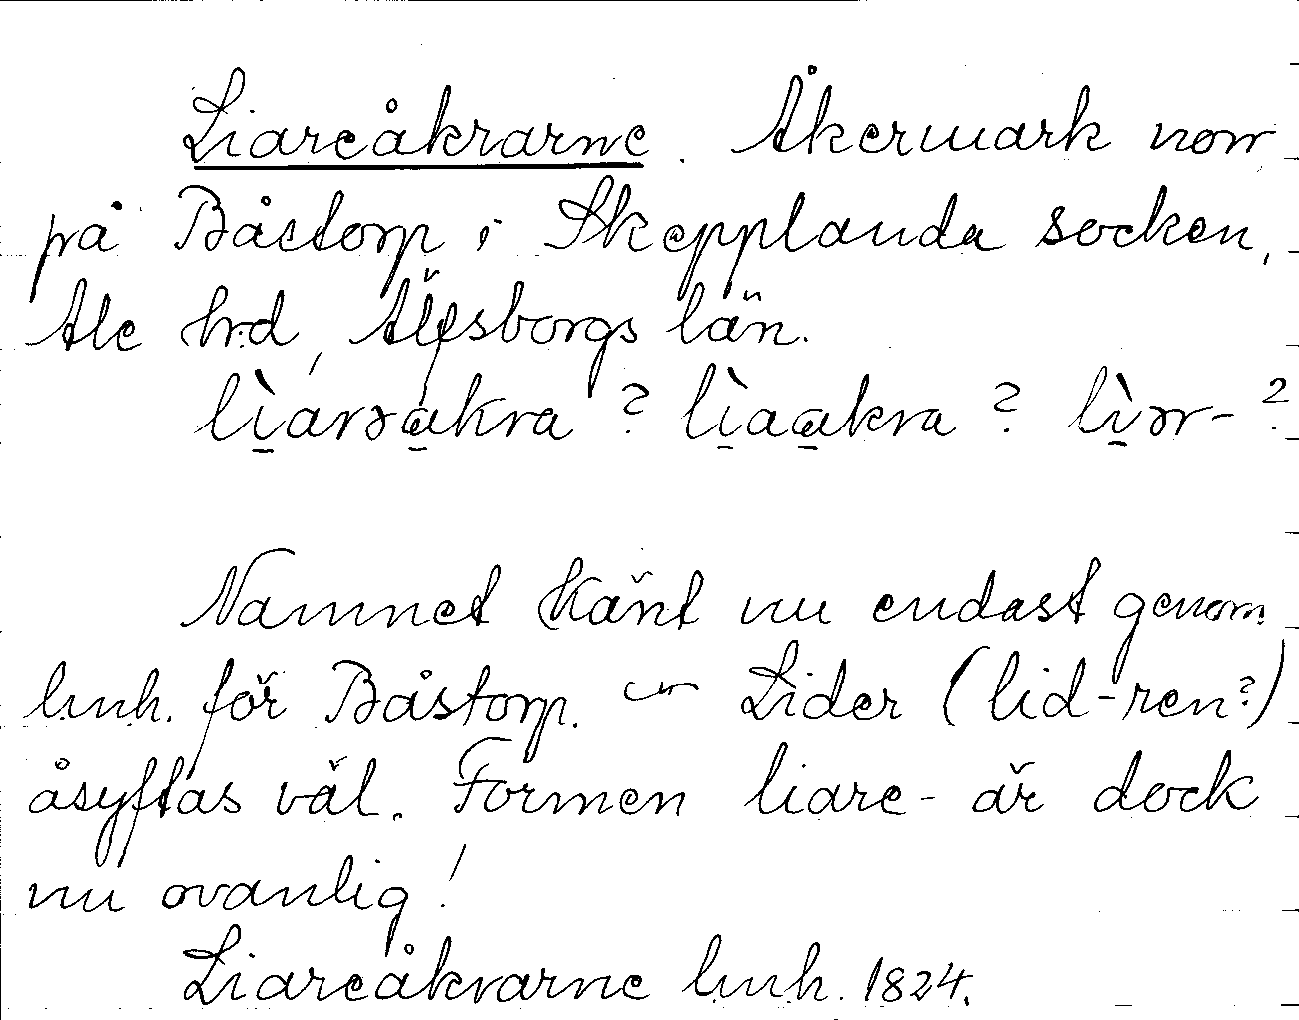 Liareåkrarne. Åkermark norr
på Båstorp i Skepplanda socken,
Ale hrd, Älfsborgs län.
lìarɜåkra ? lìaåkra ? lìɜr- ?
Namnet känt nu endast genom
lmh. för Båstorp. — Lider (lid-ren?)
åsyftas väl. Formen liare- är dock
nu ovanlig!
Liareåkrarne lmh. 1824.